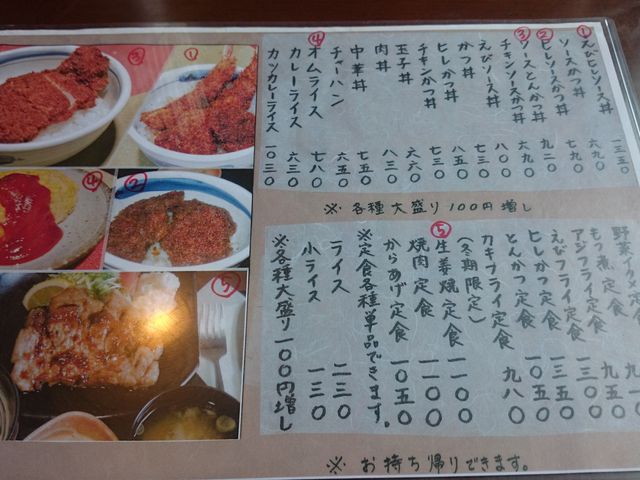 ①えびヒレソース丼 一三五〇
ソースかつ丼 六九〇
②ヒレソースかつ丼 七九〇
③ソースとんかつ丼 九二〇
チキンソースかつ丼 六九〇
えびソース丼 八〇〇
かつ丼 七三〇
ヒレかつ丼 八五〇
チキンかつ丼 七三〇
玉子丼 六六〇
肉丼 八三〇
中華丼 七五〇
チャーハン 六五〇
④オムライス 七八〇
カレーライス 六三〇
カツカレーライス 一〇三〇
※各種大盛り100円増し
野菜イタメ定食
もつ煮定食 九五〇
アジフライ定食
えびフライ定食 一三五〇
ヒレかつ定食 一〇五〇
とんかつ定食 九八〇
カキフライ定食
(冬期限定)
⑤生姜焼定食 一一〇〇
焼肉定食 一一〇〇
からあげ定食 一〇五〇
※定食各種単品できます。
ライス 二三〇
小ライス 一三〇
※各種大盛り一〇〇円増し
※お持ち帰りできます。
③
①
④
②
⑤